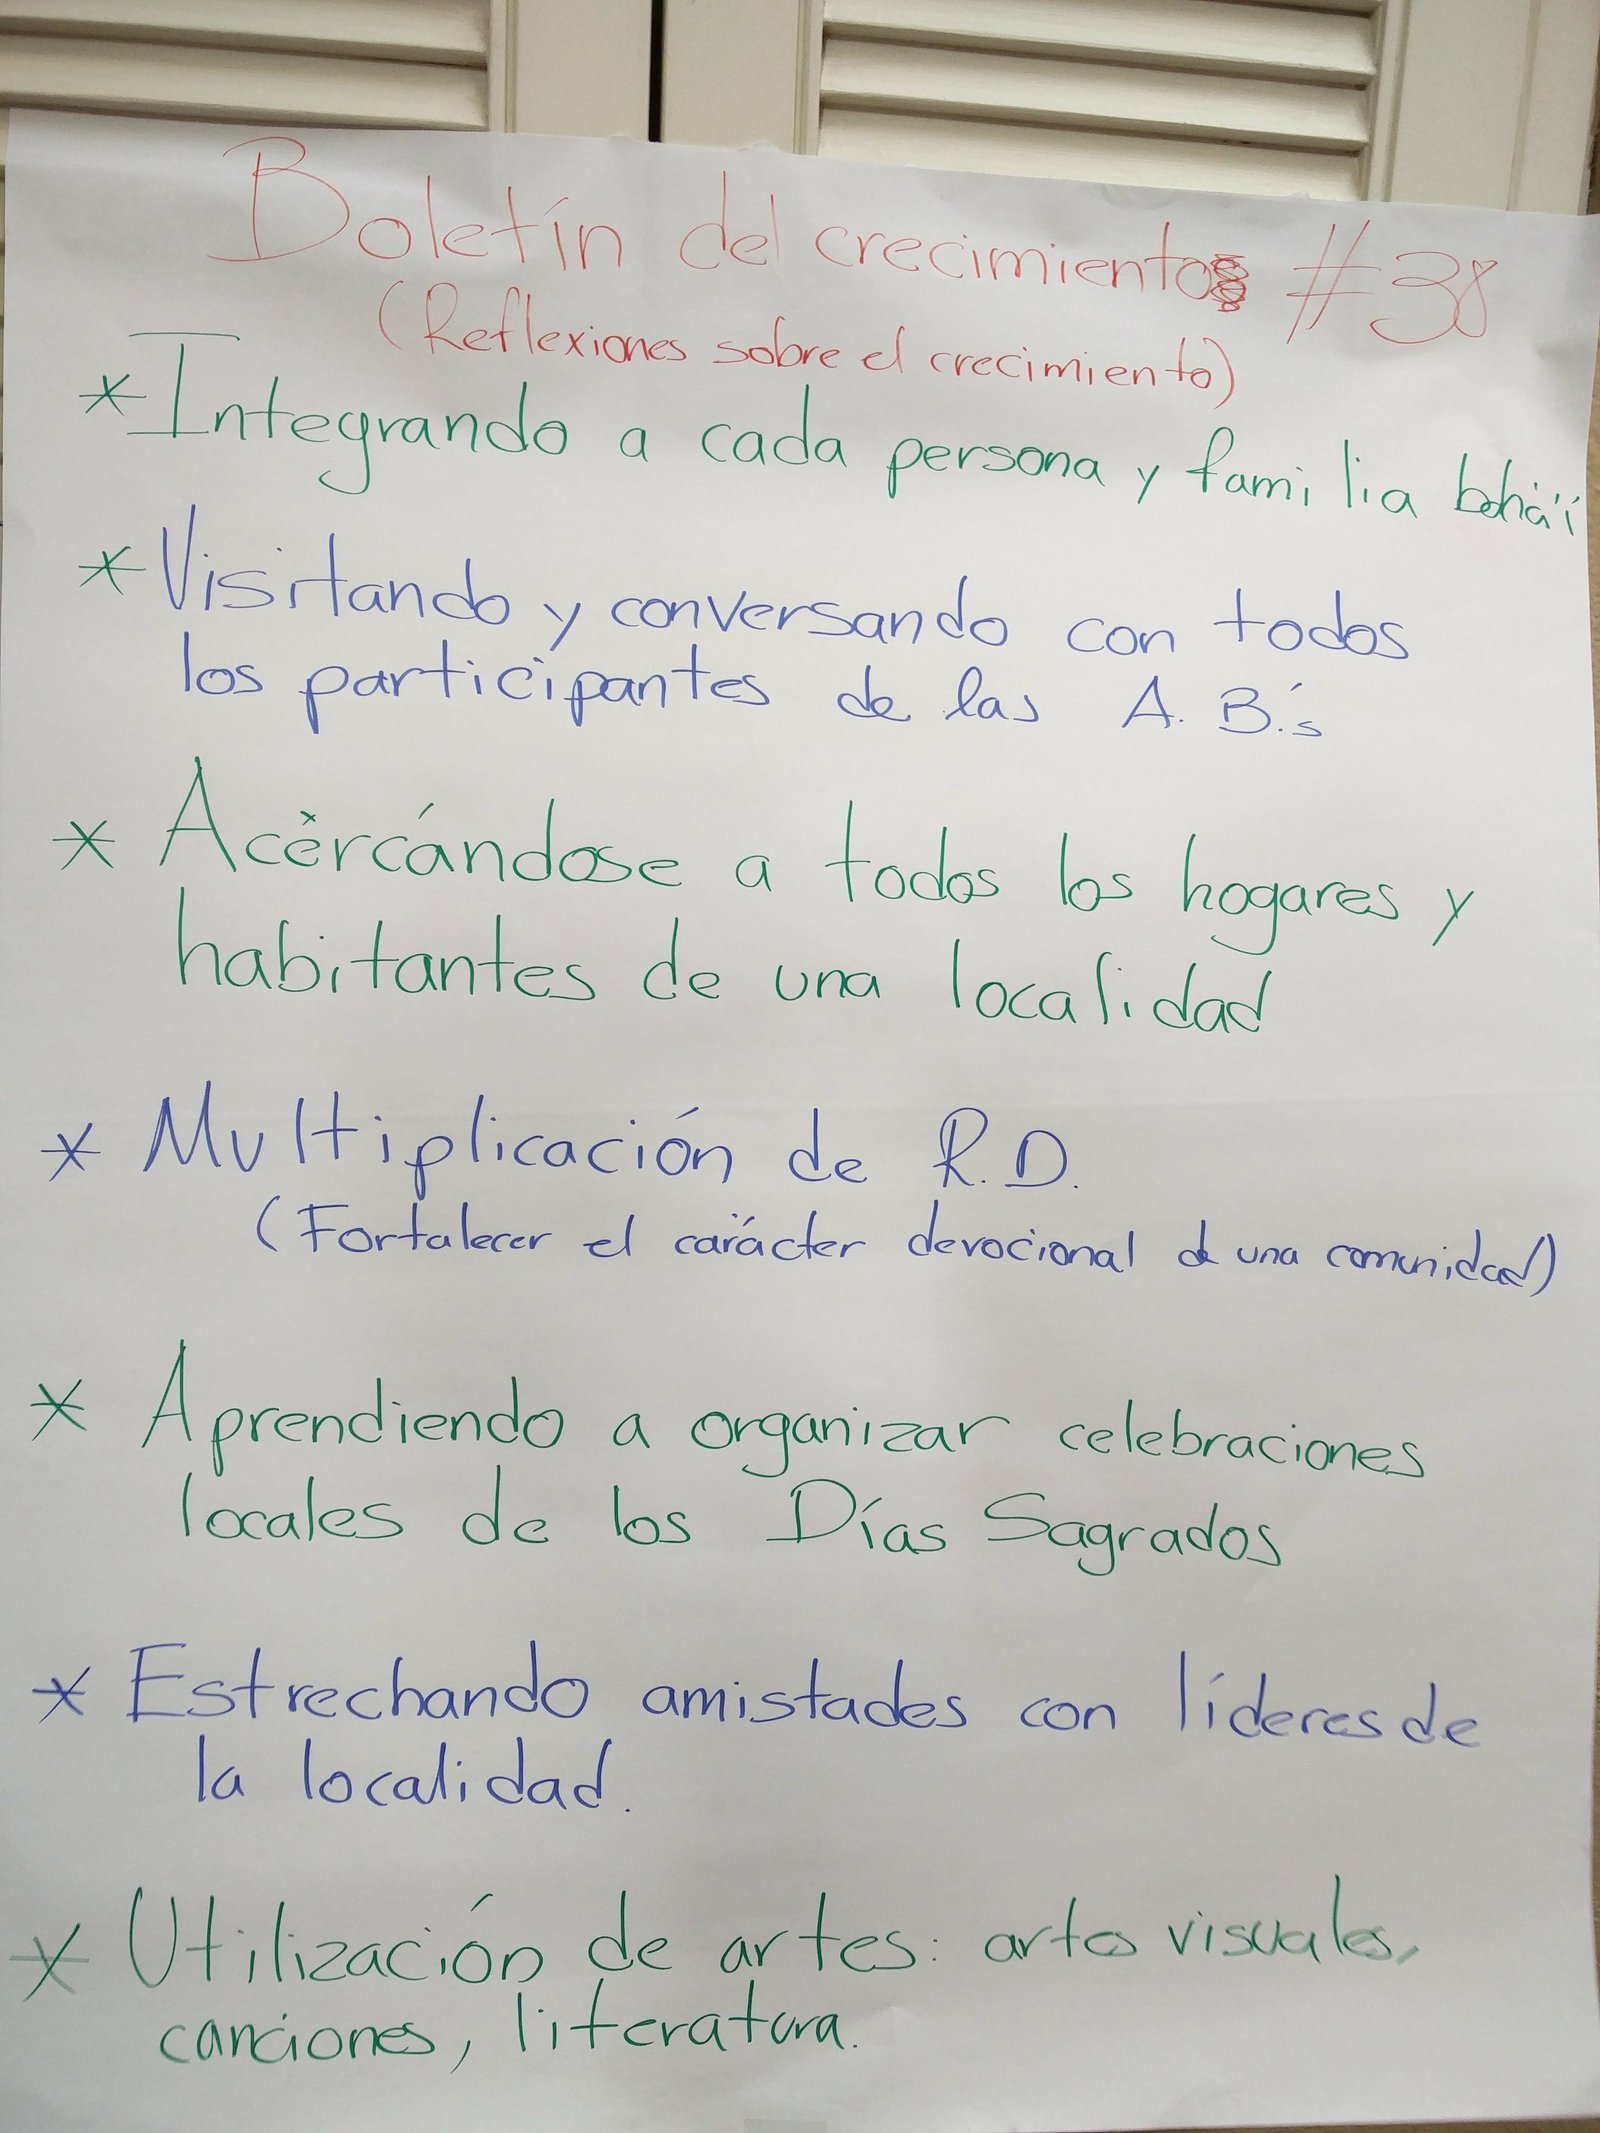 Boletín del crecimiento #38
(Reflexiones sobre el crecimiento)
* Integrando a cada persona y familia bahá'í
* Visitando y conversando con todos
los participantes de las A. B.'s
* Acércándose a todos los hogares y
habitantes de una localidad
* Multiplicación de R.D.
(Fortalecer el carácter devocional de una comunidad)
* Aprendiendo a organizar celebraciones
locales de los Días Sagrados
* Estrechando amistades con líderes de
la localidad.
* Utilización de artes: artes visuales,
canciones, literatura.